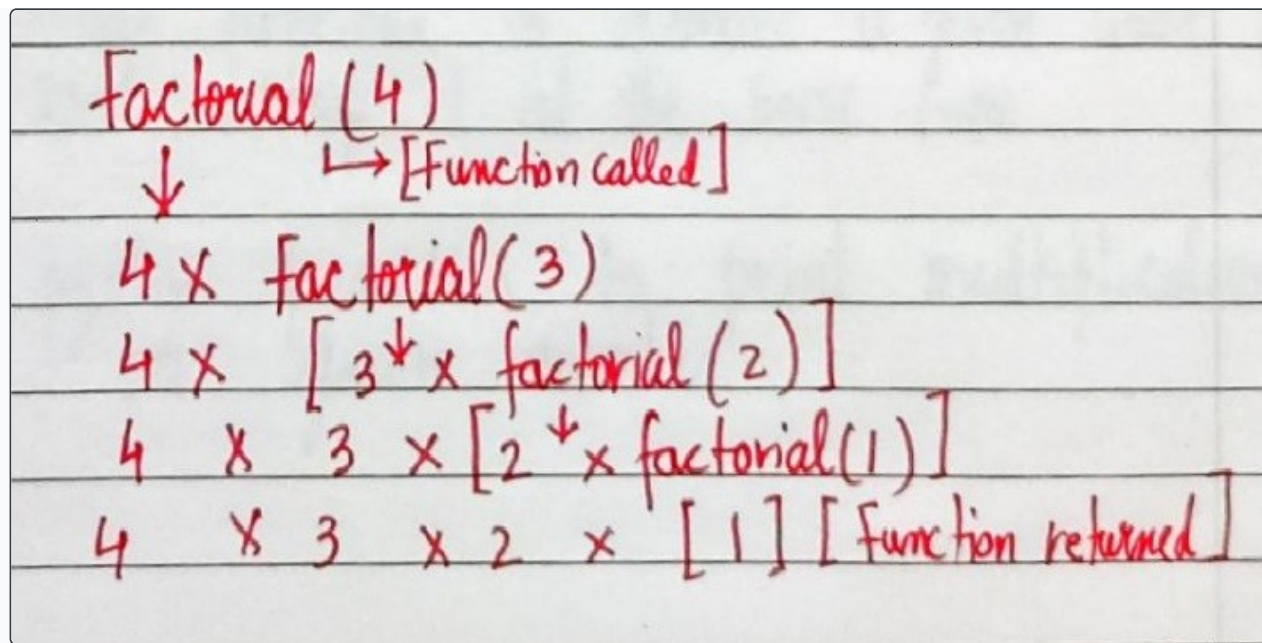 factorial (4)
↓ ↳ [Function called]
4 x factorial (3)
4 x [3 ↓ x factorial (2)]
4 x 3 x [2 ↓ x factorial (1)]
4 x 3 x 2 x [1] [Function returned]